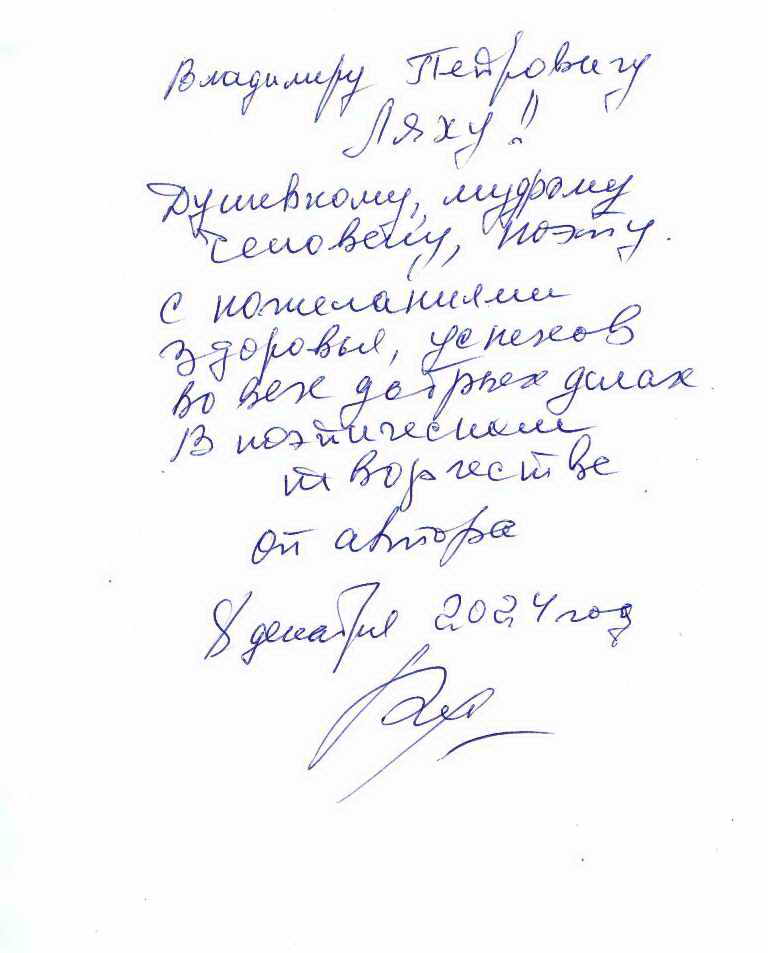 Владимиру Петровичу
Ляху!
Душевному, мудрому
человеку, поэту.
с пожеланиями
здоровья, успехов
во всех добрых делах
в поэтическом
творчестве
от автора
8 декабря 2024 год